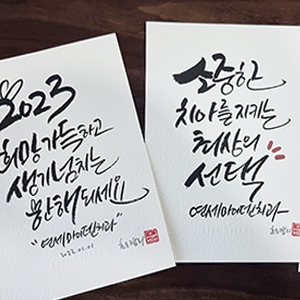 2023
희망가득하고
생기넘치는
한해되세요
"연세마이덴치과"
2023.01.01
소중한
치아를지키는
최상의
선택
연세마이덴치과